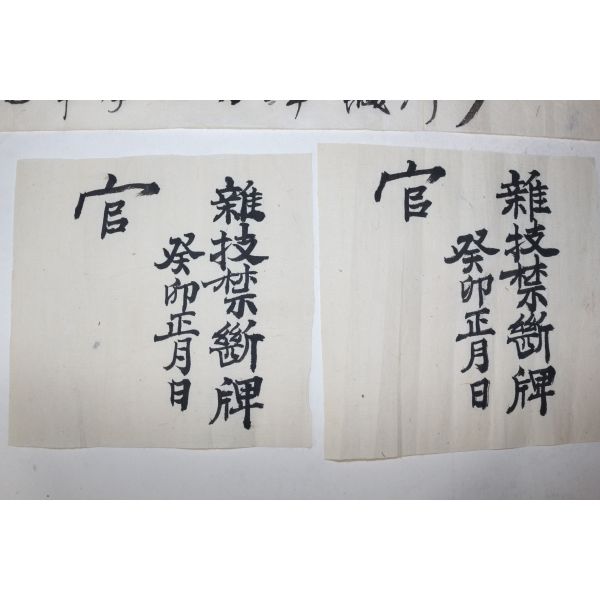 雜技禁斷牌
癸卯正月日
官
雜技禁斷牌
癸卯正月日
官